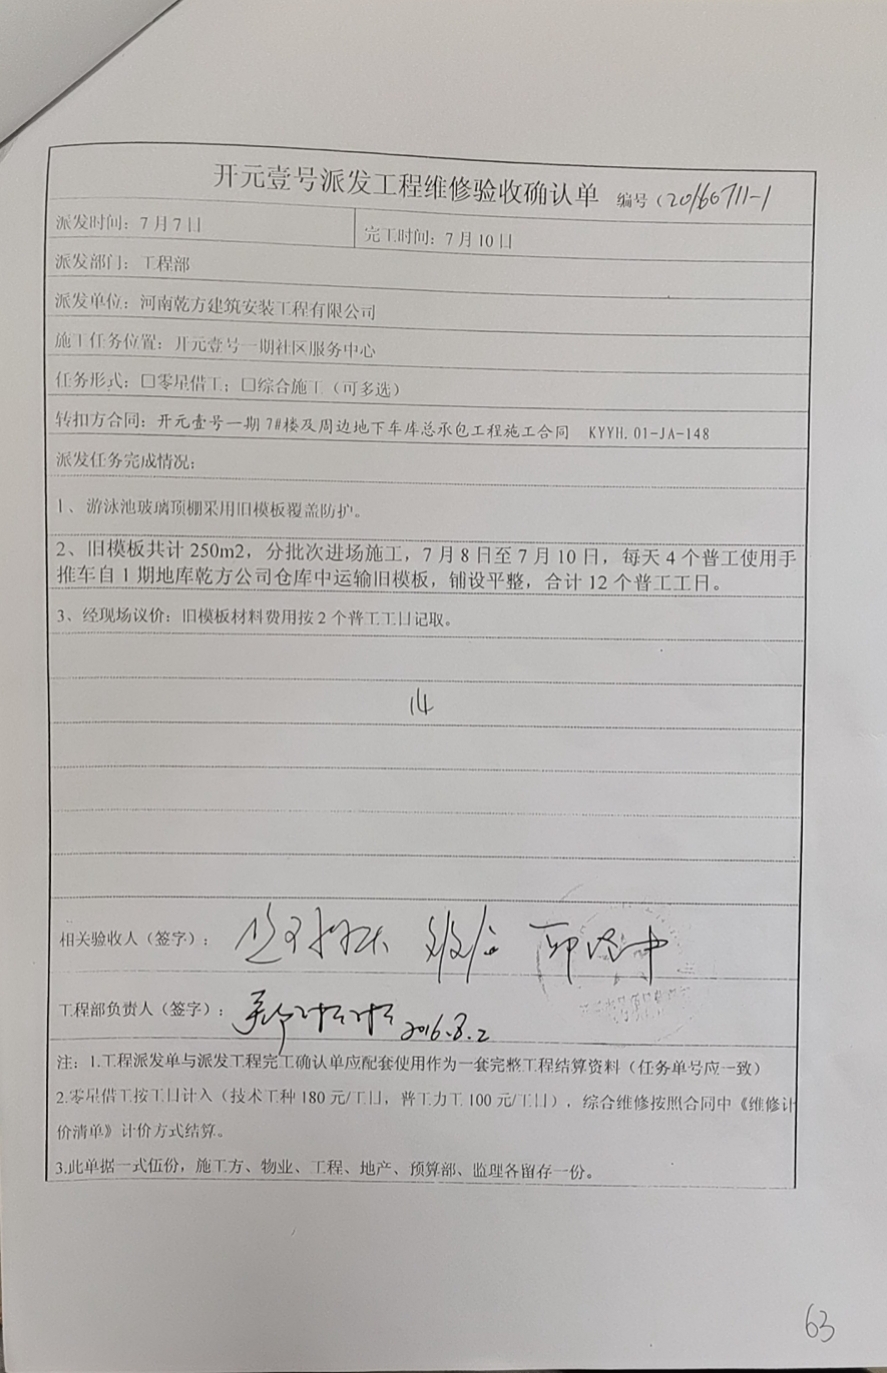 开元壹号派发工程维修验收确认单 编号（20160711-1
派发时间：7月7日 完工时间：7月10日
派发部门：工程部
派发单位：河南乾方建筑安装工程有限公司
施工任务位置：开元壹号一期社区服务中心
任务形式：☐零星借工；☐综合施工（可多选）
转扣方合同：开元壹号一期7#楼及周边地下车库总承包工程施工合同 KYYH.01-JA-148
派发任务完成情况：
1、游泳池玻璃顶棚采用旧模板覆盖防护。
2、旧模板共计250m2，分批次进场施工，7月8日至7月10日，每天4个普工使用手
推车自1期地库乾方公司仓库中运输旧模板，铺设平整，合计12个普工工日。
3、经现场议价：旧模板材料费用按2个普工工日记取。
14
相关验收人（签字）：
工程部负责人（签字）： 2016.8.2
注：1.工程派发单与派发工程完工确认单应配套使用作为一套完整工程结算资料（任务单号应一致）
2.零星借工按工日计入（技术工种180元/工日，普工力工100元/工日），综合维修按照合同中《维修计
价清单》计价方式结算。
3.此单据一式伍份，施工方、物业、工程、地产、预算部、监理各留存一份。
63